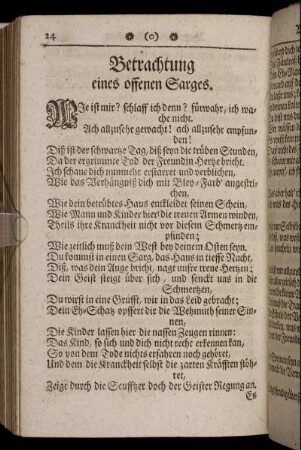 24 (o)
Betrachtung
eines offenen Sarges.
WJe ist mir? schlaff ich denn? fürwahr, ich wa-
che nicht.
Ach allzusehr gewacht! ach allzusehr empfun-
den!
Diß ist der schwartze Tag, diß seyn die trüben Stunden,
Da der ergrimmte Tod der Freundin Hertze bricht.
Jch schaue dich nunmehr erstarret und verblichen,
Wie das Verhängniß dich mit Bley-Farb' angestri-
chen,
Wie dein betrübtes Haus entkleidet seinen Schein,
Wie Mann und Kinder hier die treuen Armen winden,
Theils ihre Kranckheit nicht vor diesem Schmertz em-
pfinden;
Wie zeitlich muß dein West bey deinem Osten seyn.
Du kommst in einen Sarg, das Haus in tieffe Nacht,
Diß, was dein Auge bricht, nagt unsre treue Hertzen;
Dein Geist steiget über sich, und senckt uns in die
Schmertzen,
Du wirst in eine Grufft, wir in das Leid gebracht;
Dein Eh-Schatz opffert dir die Wehmuth seiner Sin-
nen,
Die Kinder lassen hier die nassen Zeugen rinnen:
Das Kind, so sich und dich nicht recht erkennen kan,
So von dem Tode nichts erfahren noch gehöret,
Und dem die Kranckheit selbst die zarten Kräfften stöh-
ret,
Zeigt durch die Seufftzer doch der Geister Regung an.
Es